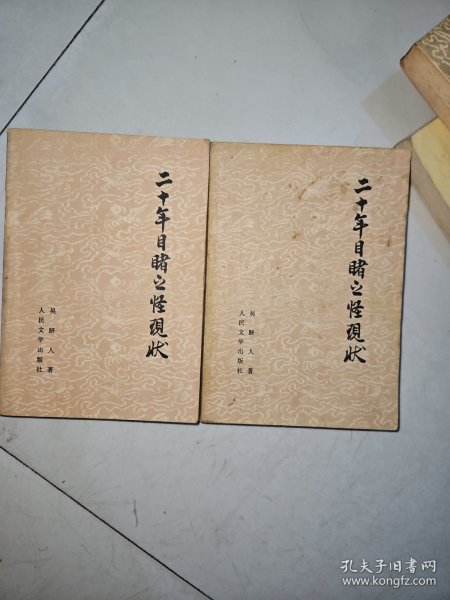 二十年目睹之怪現狀
吴趼人著
人民文学出版社
二十年目睹之怪現狀
吴趼人著
人民文学出版社
孔夫子旧书网
www.kongfz.com